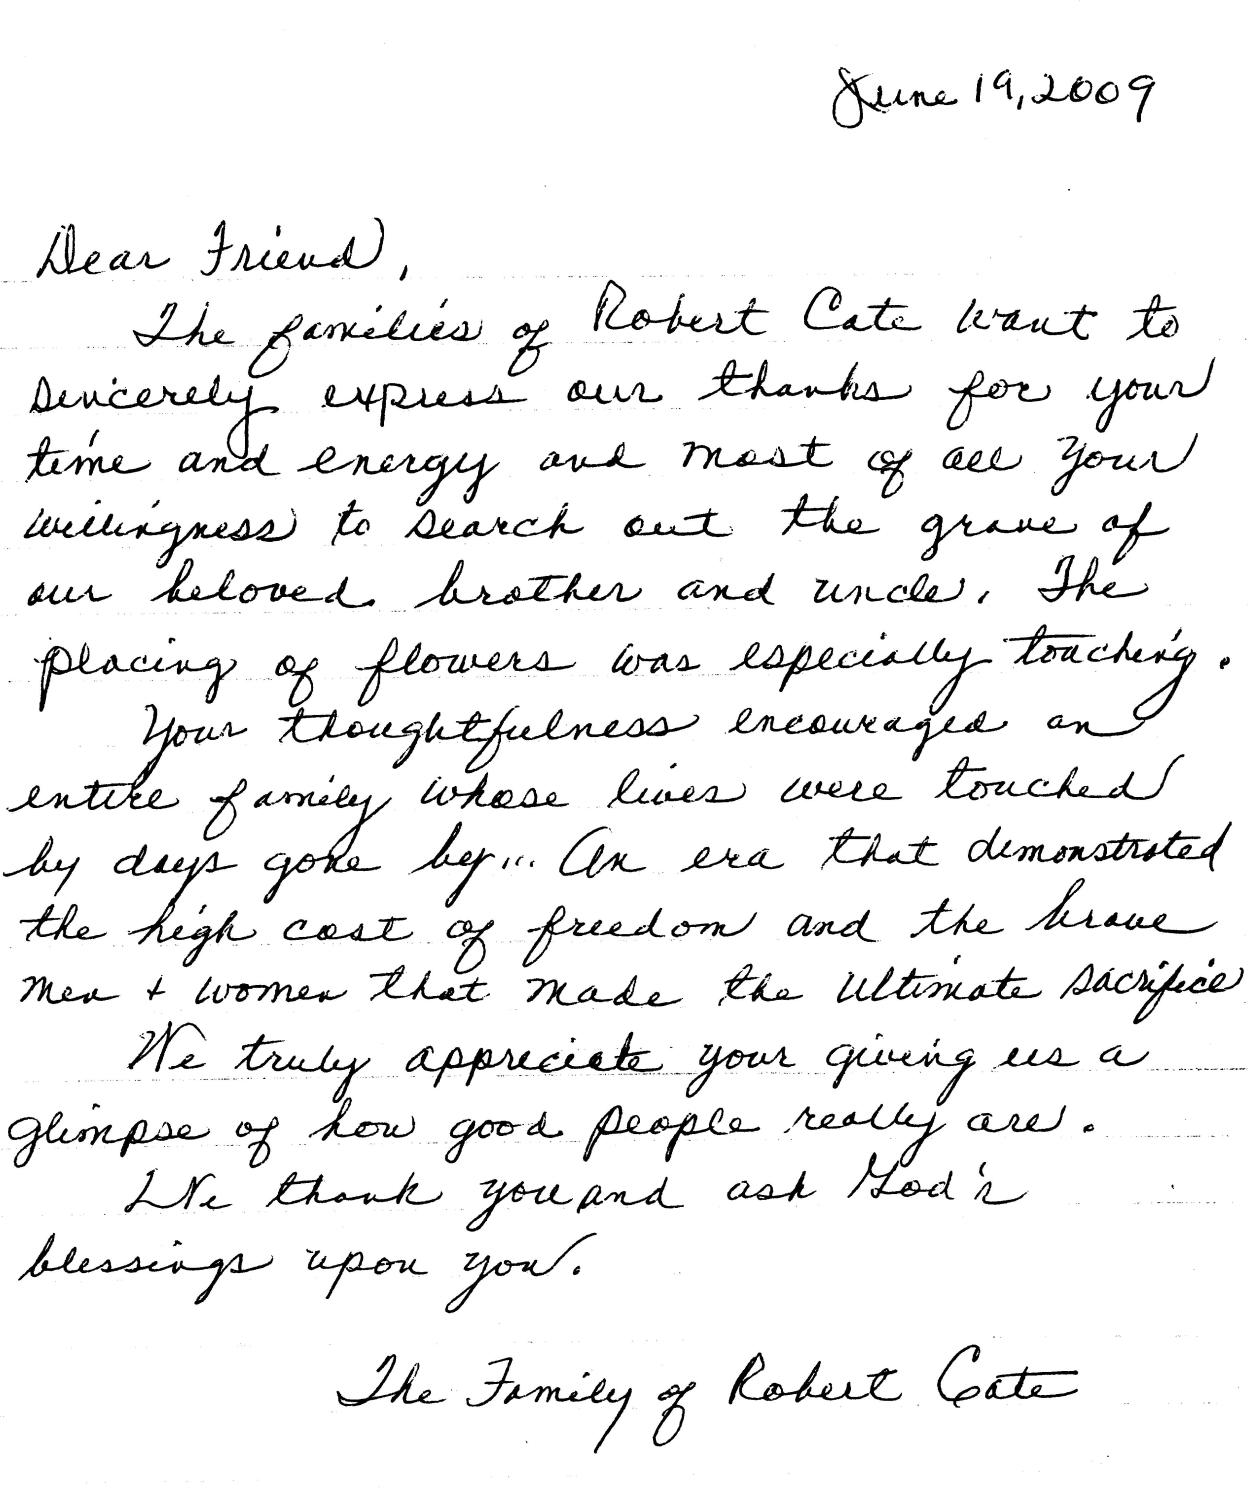 June 19, 2009
Dear Friend,
The families of Robert Cate want to
sincerely express our thanks for your
time and energy and most of all your
willingness to search out the grave of
our beloved brother and uncle. The
placing of flowers was especially touching.
Your thoughtfulness encouraged an
entire family whose lives were touched
by days gone by... An era that demonstrated
the high cost of freedom and the brave
men + women that made the ultimate sacrifice
We truly appreciate your giving us a
glimpse of how good people really are.
We thank you and ask God's
blessings upon you.
The Family of Robert Cate